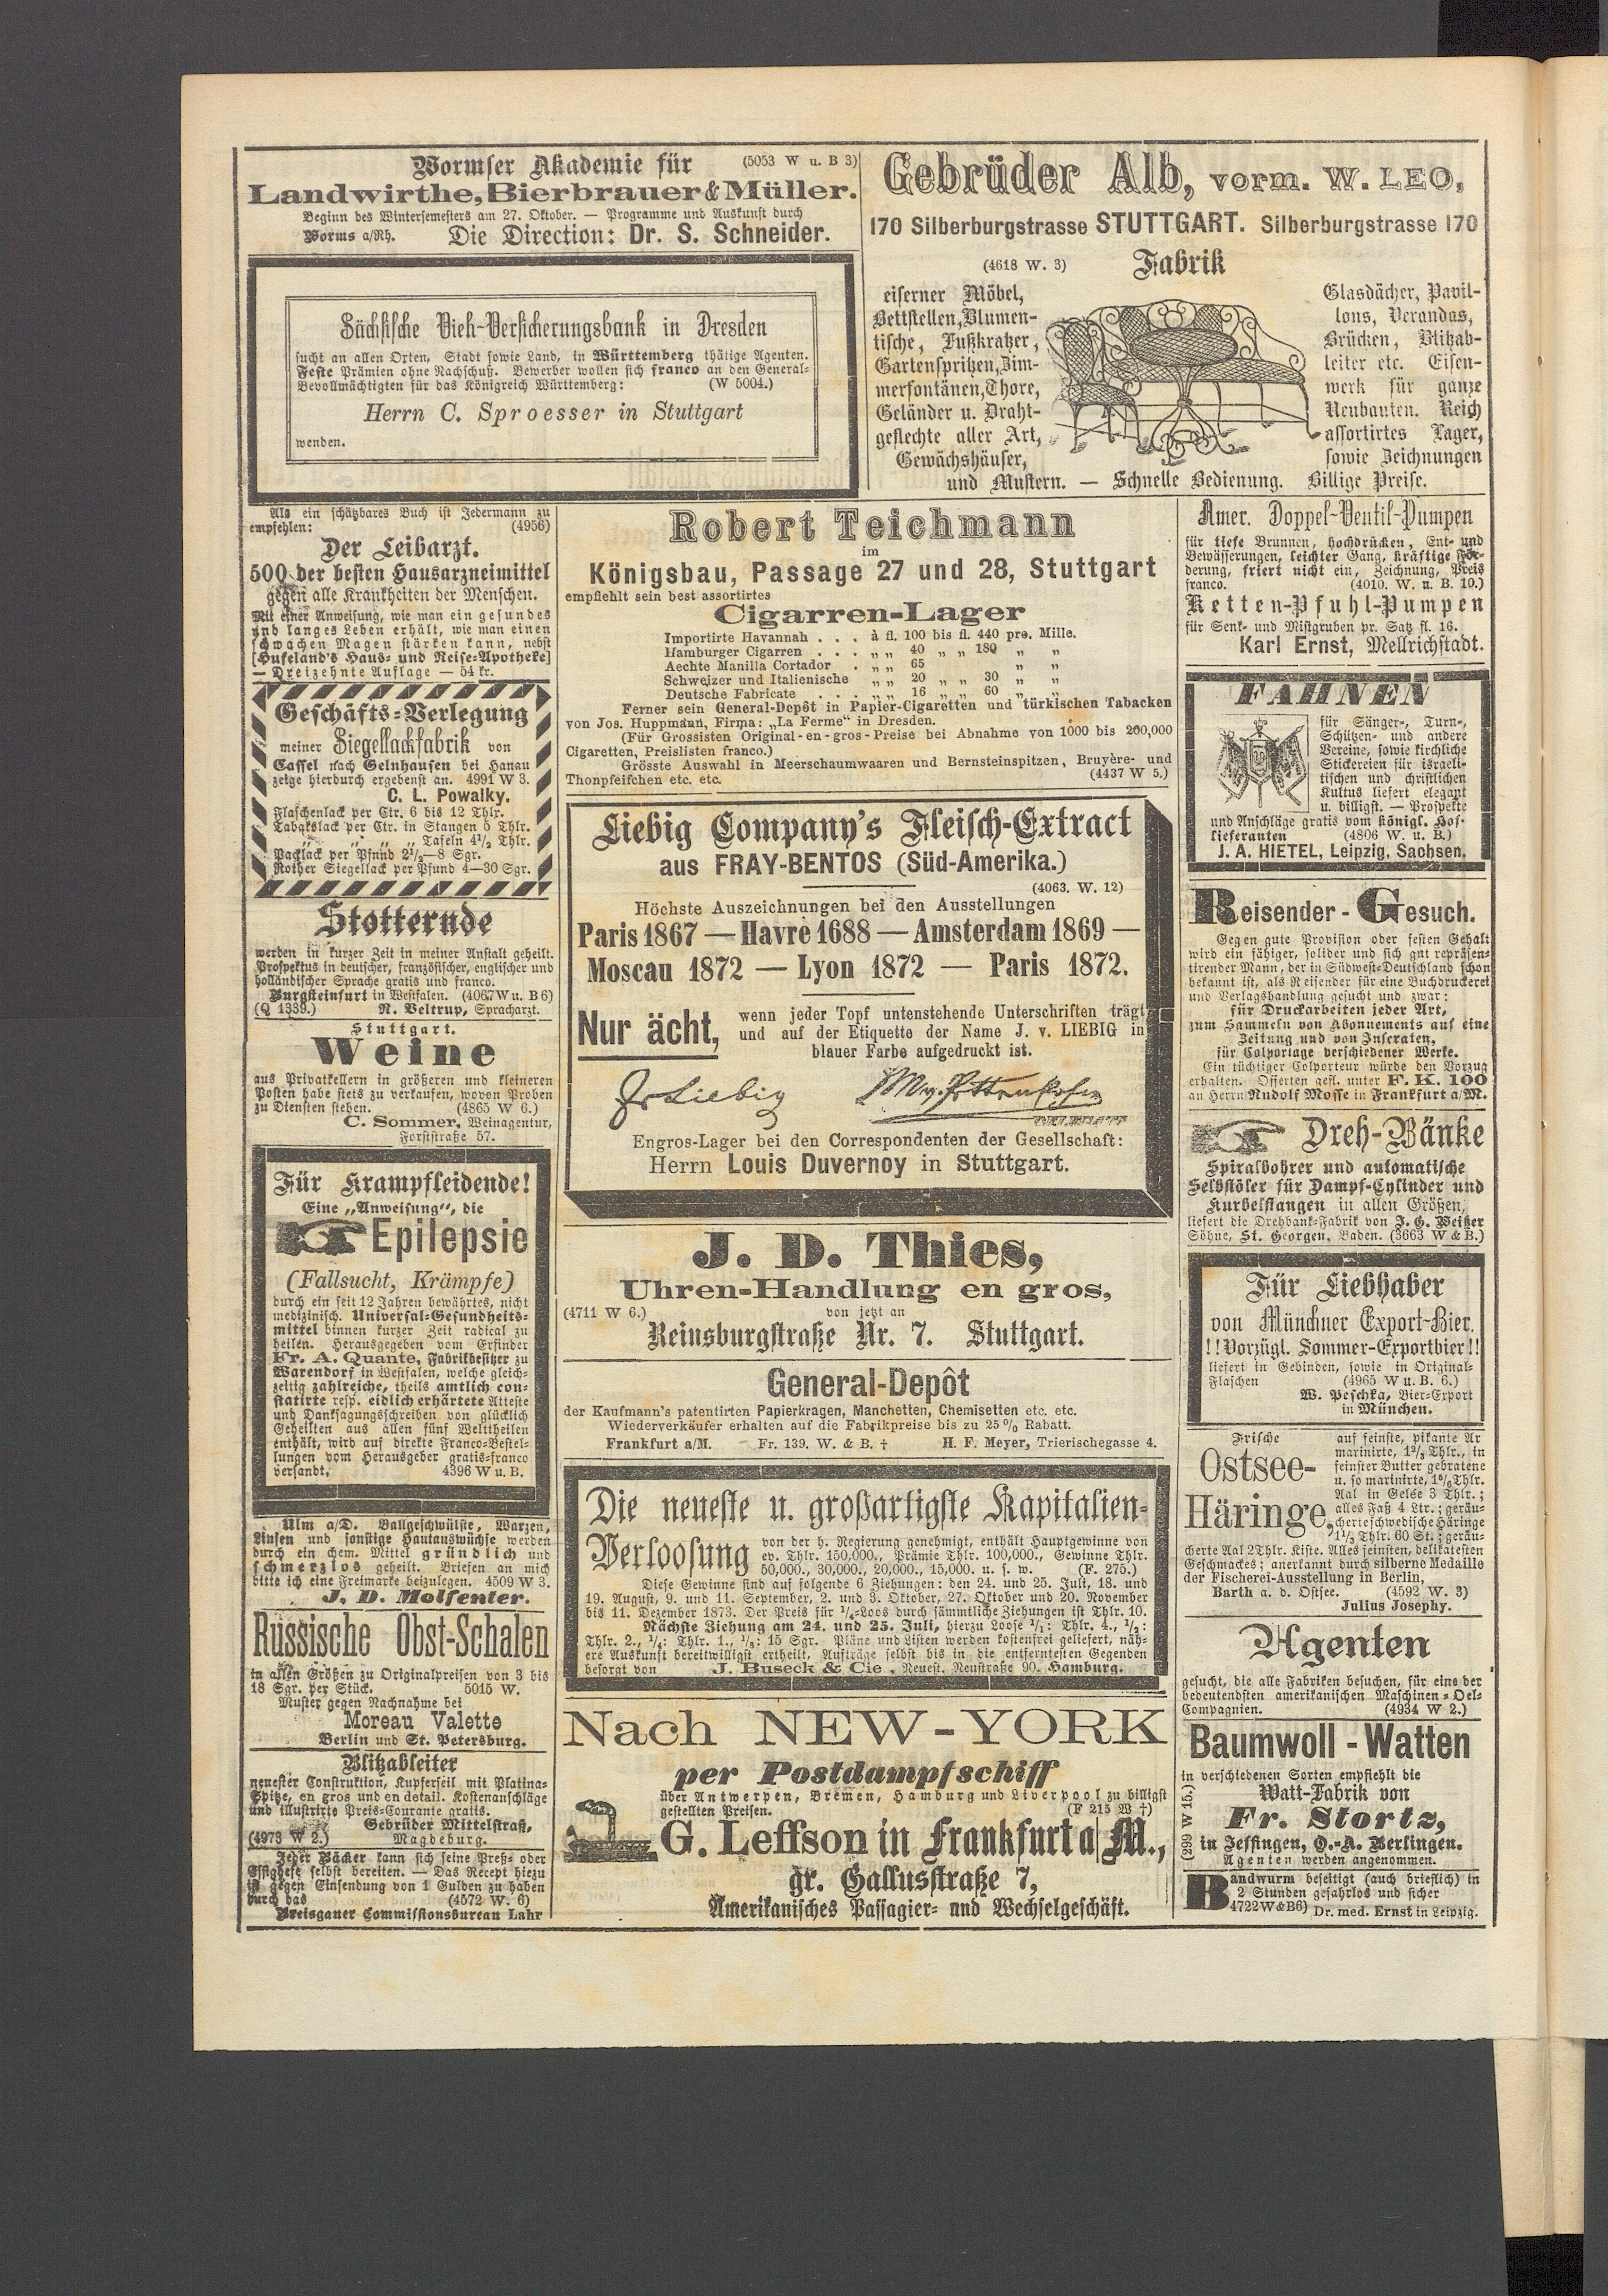 Wormser Akademie für (5053 W u. B 3)
Landwirthe, Bierbrauer & Müller.
Beginn des Wintersemesters am 27. Oktober. — Programme und Auskunft durch
Worms a/Rh. Die Direction: Dr. S. Schneider.
Sächsische Vieh-Versicherungsbank in Dresden
sucht an allen Orten, Stadt sowie Land, in Württemberg thätige Agenten.
Feste Prämien ohne Nachschuß. Bewerber wollen sich franco an den General-
Bevollmächtigten für das Königreich Württemberg: (W 5004.)
Herrn C. Sproesser in Stuttgart
wenden.
Gebrüder Alb, vorm. W. LEO,
170 Silberburgstrasse STUTTGART. Silberburgstrasse 170
(4618 W. 3) Fabrik
eiserner Möbel,
Bettstellen, Blumen-
tische, Fußkratzer,
Gartenspritzen, Zim-
merfontänen, Thore,
Geländer u. Draht-
geflechte aller Art,
Gewächshäuser,
Glasdächer, Pavil-
lons, Verandas,
Brücken, Blitzab-
leiter etc. Eisen-
werk für ganze
Neubauten. Reich
assortirtes Lager,
sowie Zeichnungen
und Mustern. — Schnelle Bedienung. Billige Preise.
Als ein schätzbares Buch ist Jedermann zu
empfehlen: (4956)
Der Leibarzt.
500 der besten Hausarzneimittel
gegen alle Krankheiten der Menschen.
Mit einer Anweisung, wie man ein gesundes
und langes Leben erhält, wie man einen
schwachen Magen stärken kann, nebst
[Hufeland's Haus- und Reise-Apotheke]
— Dreizehnte Auflage — 54 kr.
Geschäfts-Verlegung
meiner Siegellackfabrik von
Cassel nach Gelnhausen bei Hanau
zeige hierdurch ergebenst an. 4991 W 3.
C. L. Powalky.
Flaschenlack per Ctr. 6 bis 12 Thlr.
Tabakslack per Ctr. in Stangen 5 Thlr.
„ „ „ „ Tafeln 4½ Thlr.
Packlack per Pfund 2½—8 Sgr.
Rother Siegellack per Pfund 4—30 Sgr.
Stotternde
werden in kurzer Zeit in meiner Anstalt geheilt.
Prospektus in deutscher, französischer, englischer und
holländischer Sprache gratis und franco.
Burgsteinfurt in Westfalen. (4067 W u. B 6)
(Q 1339.) R. Veltrup, Spracharzt.
Stuttgart.
Weine
aus Privatkellern in größeren und kleineren
Posten habe stets zu verkaufen, wovon Proben
zu Diensten stehen. (4865 W 6.)
C. Sommer, Weinagentur,
Forststraße 57.
Für Krampfleidende!
Eine „Anweisung“, die
Epilepsie
(Fallsucht, Krämpfe)
durch ein seit 12 Jahren bewährtes, nicht
medizinisch. Universal-Gesundheits-
mittel binnen kurzer Zeit radical zu
heilen. Herausgegeben vom Erfinder
Fr. A. Quante, Fabrikbesitzer zu
Warendorf in Westfalen, welche gleich-
zeitig zahlreiche, theils amtlich con-
statirte resp. eidlich erhärtete Atteste
und Danksagungsschreiben von glücklich
Geheilten aus allen fünf Welttheilen
enthält, wird auf direkte Franco-Bestel-
lungen vom Herausgeber gratis-franco
versandt. 4396 W u. B.
Ulm a/D. Ballgeschwülste, Warzen,
Linsen und sonstige Hautauswüchse werden
durch ein chem. Mittel gründlich und
schmerzlos geheilt. Briefen an mich
bitte ich eine Freimarke beizulegen. 4509 W 3.
J. D. Molfenter.
Russische Obst-Schalen
in allen Größen zu Originalpreisen von 3 bis
18 Sgr. per Stück. 5015 W.
Muster gegen Nachnahme bei
Moreau Valette
Berlin und St. Petersburg.
Blitzableiter
neuester Construktion, Kupferseil mit Platina-
Spitze, en gros und en detail. Kostenanschläge
und illustrirte Preis-Courante gratis.
Gebrüder Mittelstraß,
(4973 W 2.) Magdeburg.
Jeder Bäcker kann sich seine Preß- oder
Essighefe selbst bereiten. — Das Recept hiezu
ist gegen Einsendung von 1 Gulden zu haben
durch das (4572 W. 6)
Breisgauer Commissionsbureau Lahr
Robert Teichmann
im
Königsbau, Passage 27 und 28, Stuttgart
empfiehlt sein best assortirtes
Cigarren-Lager
Importirte Havannah . . . à fl. 100 bis fl. 440 pro. Mille.
Hamburger Cigarren . . . „ „ 40 „ „ 180 „ „
Aechte Manilla Cortador . „ „ 65 „ „
Schweizer und Italienische „ „ 20 „ „ 30 „ „
Deutsche Fabricate . . . „ „ 16 „ „ 60 „ „
Ferner sein General-Depôt in Papier-Cigaretten und türkischen Tabacken
von Jos. Huppmann, Firma: „La Ferme“ in Dresden.
(Für Grossisten Original-en-gros-Preise bei Abnahme von 1000 bis 200,000
Cigaretten, Preislisten franco.)
Grösste Auswahl in Meerschaumwaaren und Bernsteinspitzen, Bruyère- und
Thonpfeifchen etc. etc. (4437 W 5.)
Liebig Company's Fleisch-Extract
aus FRAY-BENTOS (Süd-Amerika.)
(4063. W. 12)
Höchste Auszeichnungen bei den Ausstellungen
Paris 1867 — Havre 1688 — Amsterdam 1869 —
Moscau 1872 — Lyon 1872 — Paris 1872.
Nur ächt,
wenn jeder Topf untenstehende Unterschriften trägt
und auf der Etiquette der Name J. v. LIEBIG in
blauer Farbe aufgedruckt ist.
J v Liebig M v. Pettenkofer
Engros-Lager bei den Correspondenten der Gesellschaft:
Herrn Louis Duvernoy in Stuttgart.
J. D. Thies,
Uhren-Handlung en gros,
(4711 W 6.) von jetzt an
Reinsburgstraße Nr. 7. Stuttgart.
General-Depôt
der Kaufmann's patentirten Papierkragen, Manchetten, Chemisetten etc. etc.
Wiederverkäufer erhalten auf die Fabrikpreise bis zu 25% Rabatt.
Frankfurt a/M. Fr. 139. W. & B. † H. F. Meyer, Trierischegasse 4.
Die neueste u. großartigste Kapitalien-
Verloosung
von der h. Regierung genehmigt, enthält Hauptgewinne von
ev. Thlr. 150,000., Prämie Thlr. 100,000., Gewinne Thlr.
50,000., 30,000., 20,000., 15,000. u. s. w. (F. 275.)
Diese Gewinne sind auf folgende 6 Ziehungen: den 24. und 25. Juli, 18. und
19. August, 9. und 11. September, 2. und 3. Oktober, 27. Oktober und 20. November
bis 11. Dezember 1873. Der Preis für ¼-Loos durch sämmtliche Ziehungen ist Thlr. 10.
Nächste Ziehung am 24. und 25. Juli, hierzu Loose ¹/₁: Thlr. 4., ½:
Thlr. 2., ¼: Thlr. 1., ⅛: 15 Sgr. Pläne und Listen werden kostenfrei geliefert, näh-
ere Auskunft bereitwilligst ertheilt, Aufträge selbst bis in die entferntesten Gegenden
besorgt von J. Buseck & Cie, Neuest. Neustraße 90. Hamburg.
Nach NEW-YORK
per Postdampfschiff
über Antwerpen, Bremen, Hamburg und Liverpool zu billigst
gestellten Preisen. (F 215 W †)
G. Leffson in Frankfurt a/M.,
gr. Gallusstraße 7,
Amerikanisches Passagier- und Wechselgeschäft.
Amer. Doppel-Ventil-Pumpen
für tiefe Brunnen, hochdrücken, Ent- und
Bewässerungen, leichter Gang, kräftige För-
derung, friert nicht ein, Zeichnung, Preis
franco. (4010. W. u. B. 19.)
Ketten-Pfuhl-Pumpen
für Senk- und Mistgruben pr. Satz fl. 16.
Karl Ernst, Mellrichstadt.
FAHNEN
für Sänger-, Turn-,
Schützen- und andere
Vereine, sowie kirchliche
Stickereien für israeli-
tischen und christlichen
Kultus liefert elegant
u. billigst. — Prospekte
und Anschläge gratis vom königl. Hof-
lieferanten (4806 W. u. B.)
J. A. HIETEL, Leipzig, Sachsen.
Reisender-Gesuch.
Gegen gute Provision oder festen Gehalt
wird ein fähiger, solider und sich gut repräsen-
tirender Mann, der in Südwest-Deutschland schon
bekannt ist, als Reisender für eine Buchdruckerei
und Verlagshandlung gesucht und zwar:
für Druckarbeiten jeder Art,
zum Sammeln von Abonnements auf eine
Zeitung und von Inseraten,
für Colportage verschiedener Werke.
Ein tüchtiger Colporteur würde den Vorzug
erhalten. Offerten gefl. unter F. K. 100
an Herrn Rudolf Mosse in Frankfurt a/M.
Dreh-Bänke
Spiralbohrer und automatische
Selbstöler für Dampf-Cylinder und
Kurbelstangen in allen Größen,
liefert die Drehbank-Fabrik von J. G. Weißer
Söhne, St. Georgen, Baden. (3663 W & B.)
Für Liebhaber
von Münchner Export-Bier.
!!Vorzügl. Sommer-Exportbier!!
liefert in Gebinden, sowie in Original-
Flaschen (4965 W u. B. 6.)
W. Peschka, Bier-Export
in München.
Frische
Ostsee-
Häringe,
auf feinste, pikante Ar
marinirte, 1⅔ Thlr., in
feinster Butter gebratene
u. so marinirte, 1⅚ Thlr.
Aal in Gelée 3 Thlr.;
alles Faß 4 Ltr.; geräu-
cherte schwedische Häringe
1⅓ Thlr. 60 St.; geräu-
cherte Aal 2 Thlr. Kiste. Alles feinsten, delikatesten
Geschmackes; anerkannt durch silberne Medaille
der Fischerei-Ausstellung in Berlin,
Barth a. d. Ostsee. (4592 W. 3)
Julius Josephy.
Agenten
gesucht, die alle Fabriken besuchen, für eine der
bedeutendsten amerikanischen Maschinen-Oel-
Compagnien. (4934 W 2.)
Baumwoll-Watten
in verschiedenen Sorten empfiehlt die
Watt-Fabrik von
Fr. Stortz,
in Jesingen, O.-A. Berlingen.
Agenten werden angenommen.
(299 W 15.)
Bandwurm beseitigt (auch brieflich) in
2 Stunden gefahrlos und sicher
4722 W & B 6) Dr. med. Ernst in Leipzig.